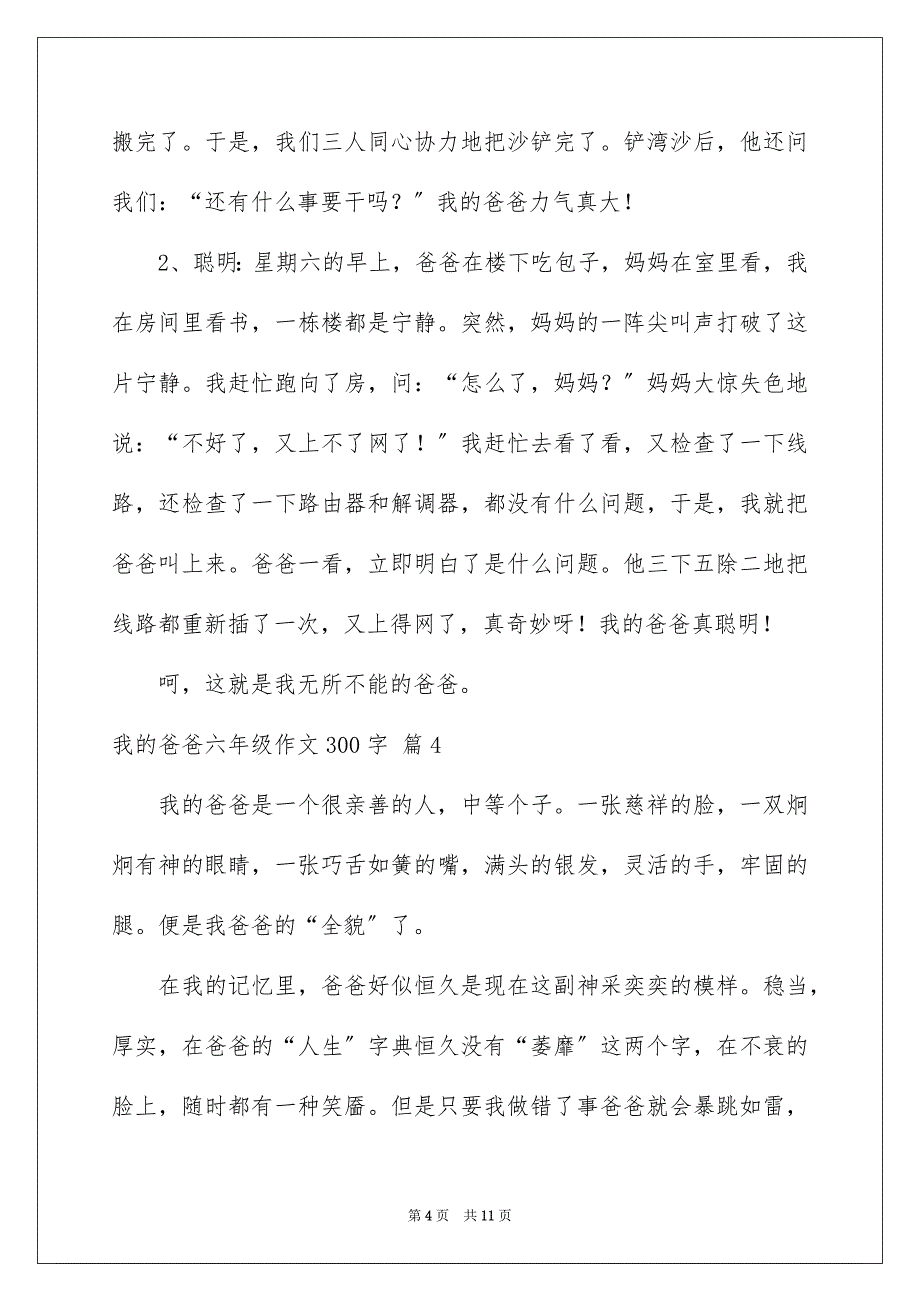 搬完了。于是，我们三人同心协力地把沙铲完了。铲湾沙后，他还问
我们：“还有什么事要干吗？〞我的爸爸力气真大！
2、聪明：星期六的早上，爸爸在楼下吃包子，妈妈在室里看，我
在房间里看书，一栋楼都是宁静。突然，妈妈的一阵尖叫声打破了这
片宁静。我赶忙跑向了房，问：“怎么了，妈妈？〞妈妈大惊失色地
说：“不好了，又上不了网了！〞我赶忙去看了看，又检查了一下线
路，还检查了一下路由器和解调器，都没有什么问题，于是，我就把
爸爸叫上来。爸爸一看，立即明白了是什么问题。他三下五除二地把
线路都重新插了一次，又上得网了，真奇妙呀！我的爸爸真聪明！
呵，这就是我无所不能的爸爸。
我的爸爸六年级作文300字 篇4
我的爸爸是一个很亲善的人，中等个子。一张慈祥的脸，一双炯
炯有神的眼睛，一张巧舌如簧的嘴，满头的银发，灵活的手，牢固的
腿。便是我爸爸的“全貌〞了。
在我的记忆里，爸爸好似恒久是现在这副神采奕奕的模样。稳当，
厚实，在爸爸的“人生〞字典恒久没有“萎靡〞这两个字，在不衰的
脸上，随时都有一种笑靥。但是只要我做错了事爸爸就会暴跳如雷，
第4页 共11页